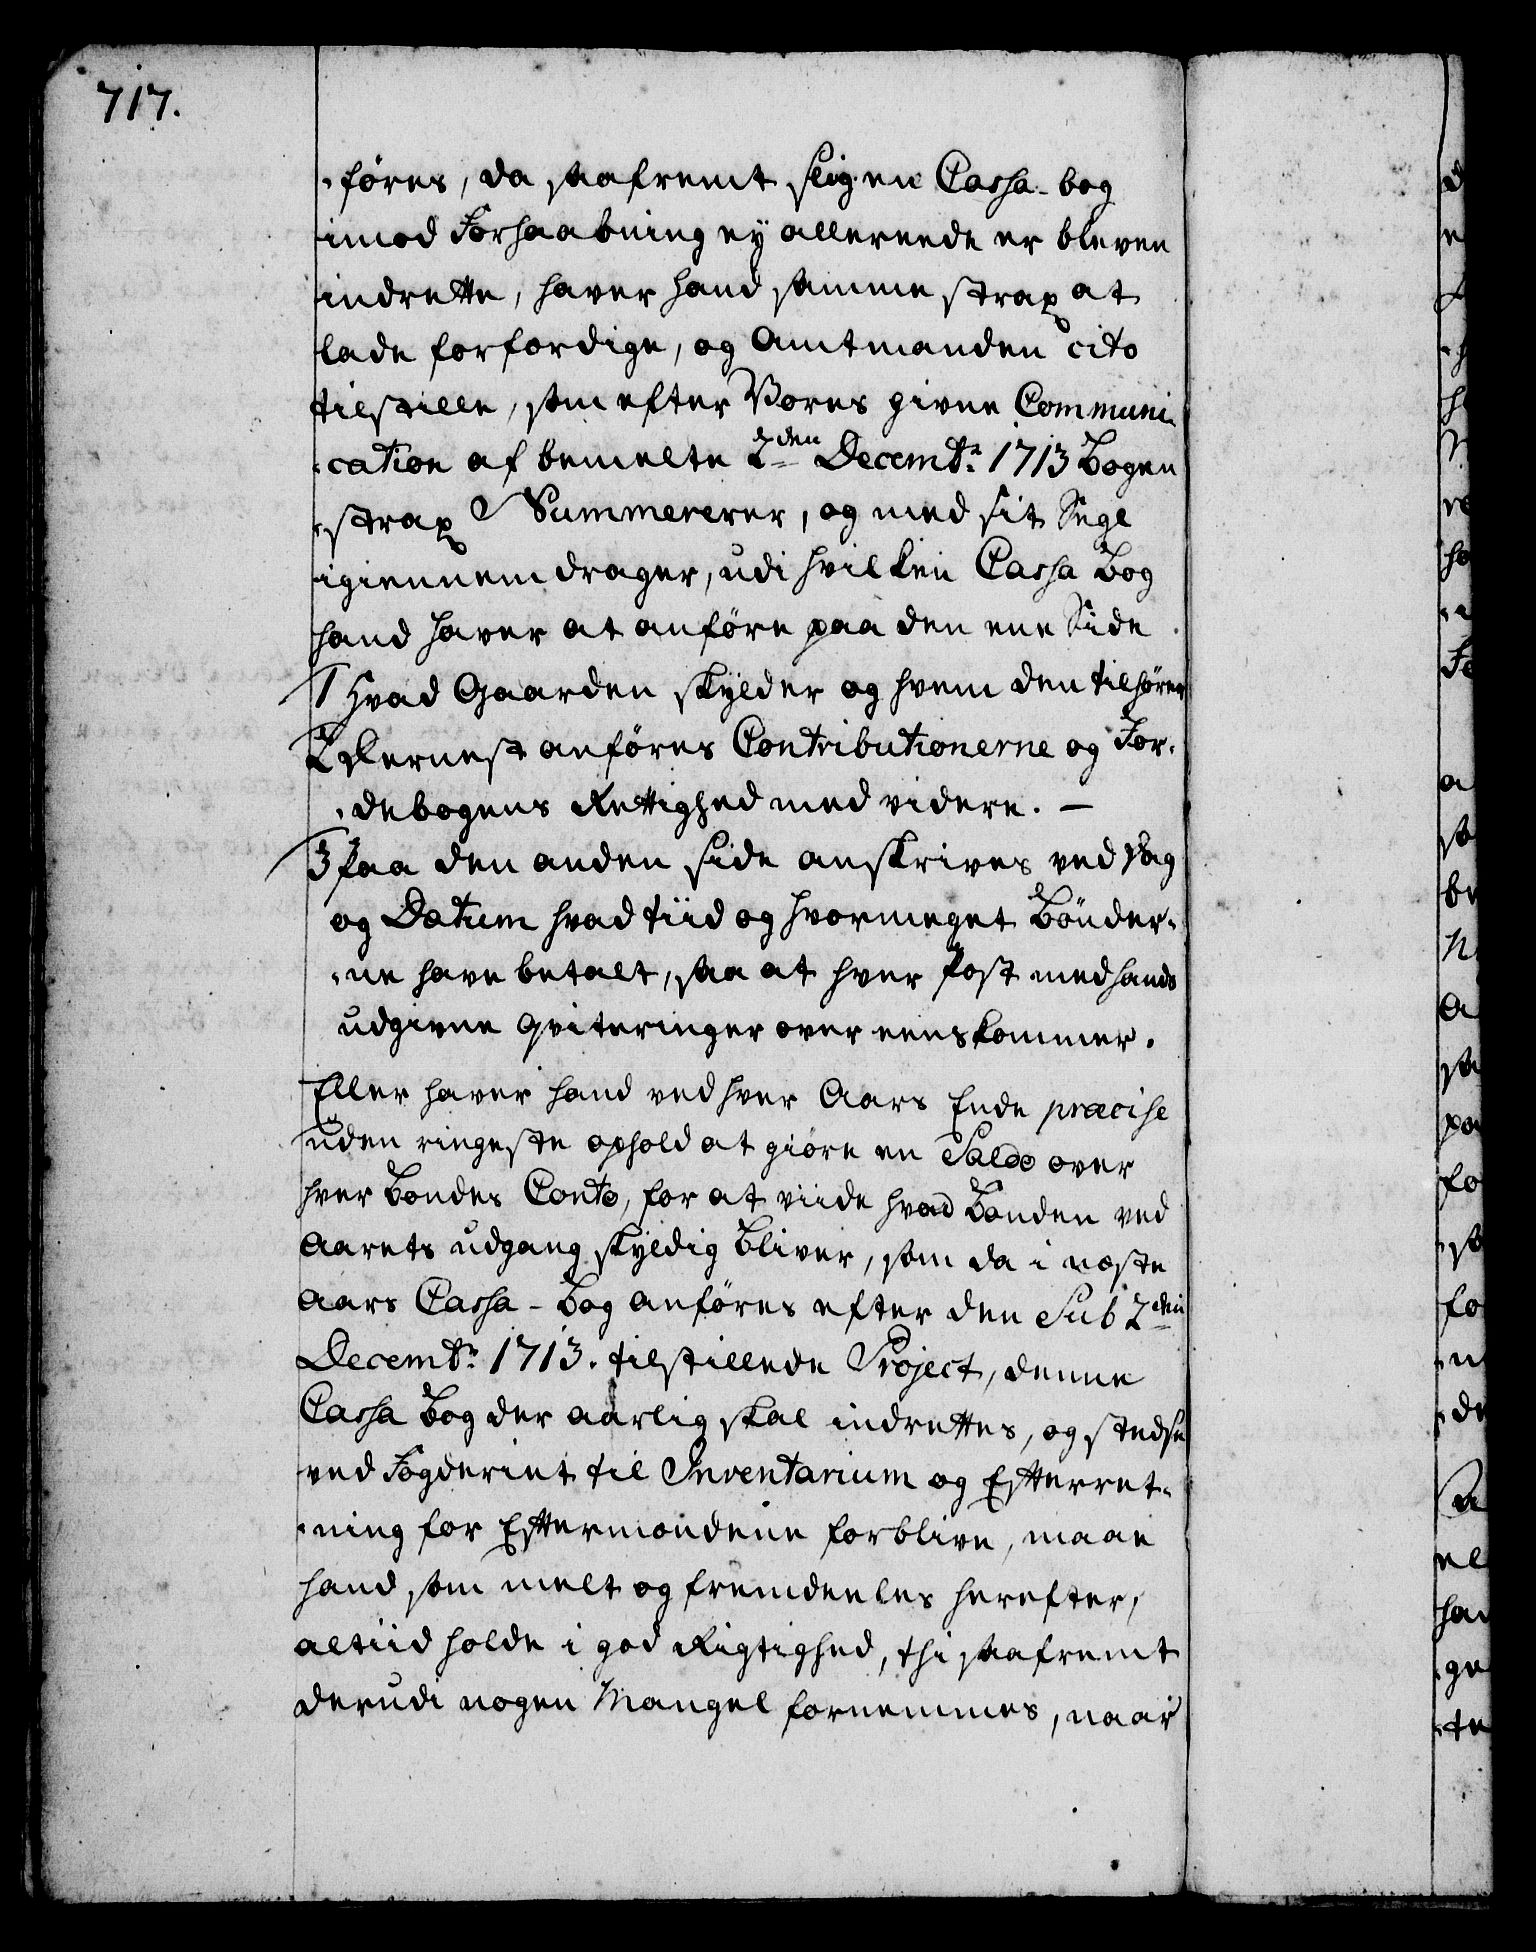 717.
-föres, da saafremt sligen Cassa-bog
imod Forhaabning ey allereede er bleven
indrette, haver hand samme strax at
lade forfordige, og Amtmanden cito
tilstille, som efter Vores givne Communi-
-cation af bemelte 2den Decembr. 1713 Bogen
strax Summererer, og med sit Segl
igiennemdrager, udi hvilken Cassa Bog
hand haver at anföre paa den ene Side
1 Hvad Gaarden skylder og hvem den tilhörer
2 Dernest anföres Contributionerne og Jor-
-debogens Rettighed med videre. —
3 Paa den anden side anskrives ved Dag
og Datum hvad tiid og hvormeget Bönder-
-ne have betalt, saa at hver Post med hands
udgivne qviteringer over eenskommer.
Eller haver hand ved hver Aars Ende præcise
uden ringeste ophold at giöre en Saldo over
hver Bondes Conto, for at viide hvad Bonden ved
Aarets udgang skyldig bliver, som da i næste
Aars Cassa-Bog anföres efter den Sub 2den
Decembr. 1713. tilstillede Project, denne
Cassa Bog der aarlig skal indrettes, og stedse
ved Fogderiet til Inventarium og Efterret-
-ning for Eftermændene forblive, maae
hand som melt og fremdeeles herefter,
altiid holde i god Rigtighed, thi saafremt
derudi nogen Mangel fornemmes, naar